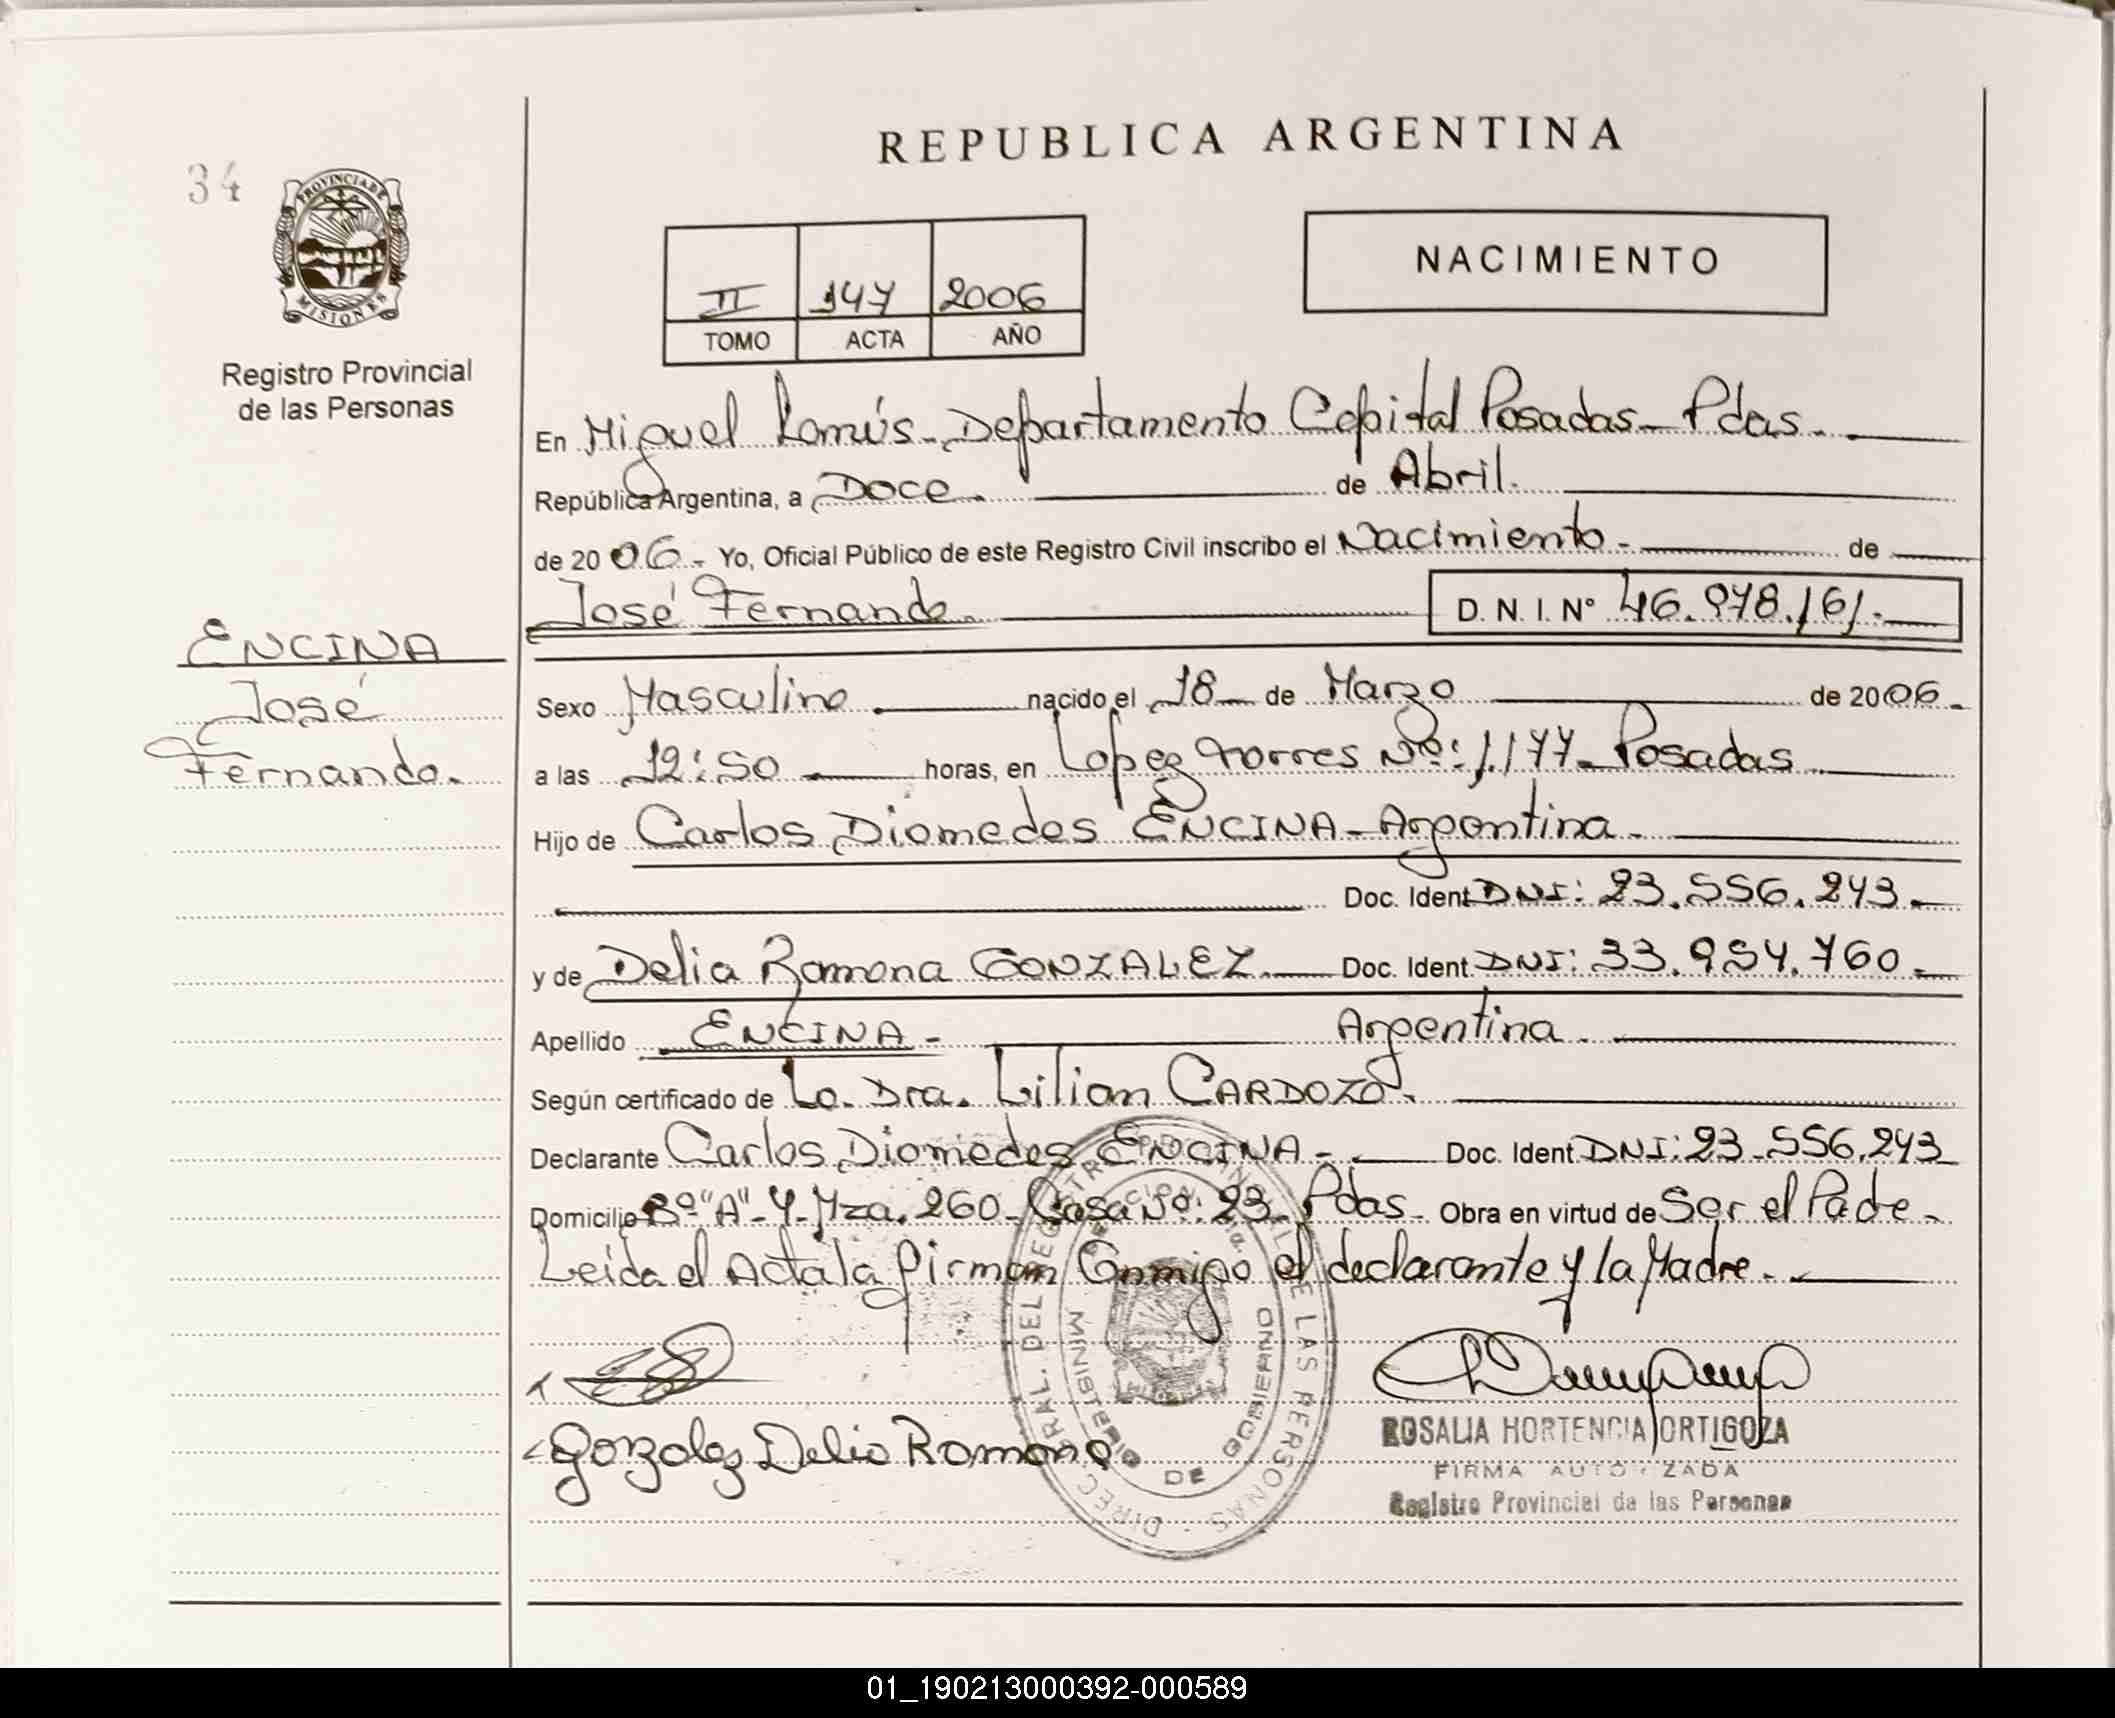 REPUBLICA ARGENTINA
34
PROVINCIA DE
MISIONES
Registro Provincial
de las Personas
II 147 2006
TOMO ACTA AÑO
NACIMIENTO
En Miguel Lanús - Departamento Capital Posadas - Pdas.
República Argentina, a Doce. de Abril.
de 2006.- Yo, Oficial Público de este Registro Civil inscribo el Nacimiento - de
José Fernando. D. N. I. Nº 46.978.161.-
ENCINA
José
Fernando.
Sexo Masculino nacido el 18 de Marzo de 2006.-
a las 12:50 horas, en Lopez Torres Nº: 1.177 - Posadas
Hijo de Carlos Diomedes ENCINA - Argentina.
Doc. Ident DNI: 23.556.243.-
y de Delia Ramona GONZALEZ. Doc. Ident DNI: 33.954.760.-
Apellido ENCINA - Argentina.
Según certificado de La. Dra. Lilian CARDOZO.
Declarante Carlos Diomedes ENCINA - Doc. Ident DNI: 23.556.243
Domicilio Bº "A"-4-Mza. 260 - Casa Nº: 23 - Pdas - Obra en virtud de Ser el Padre -
Leida el Acta la firman Conmigo el declarante y la Madre.
Gonzalez Delia Ramona
ROSALIA HORTENCIA ORTIGOZA
FIRMA AUTORIZADA
Registro Provincial de las Personas
MINISTERIO DE GOBIERNO
01_190213000392-000589